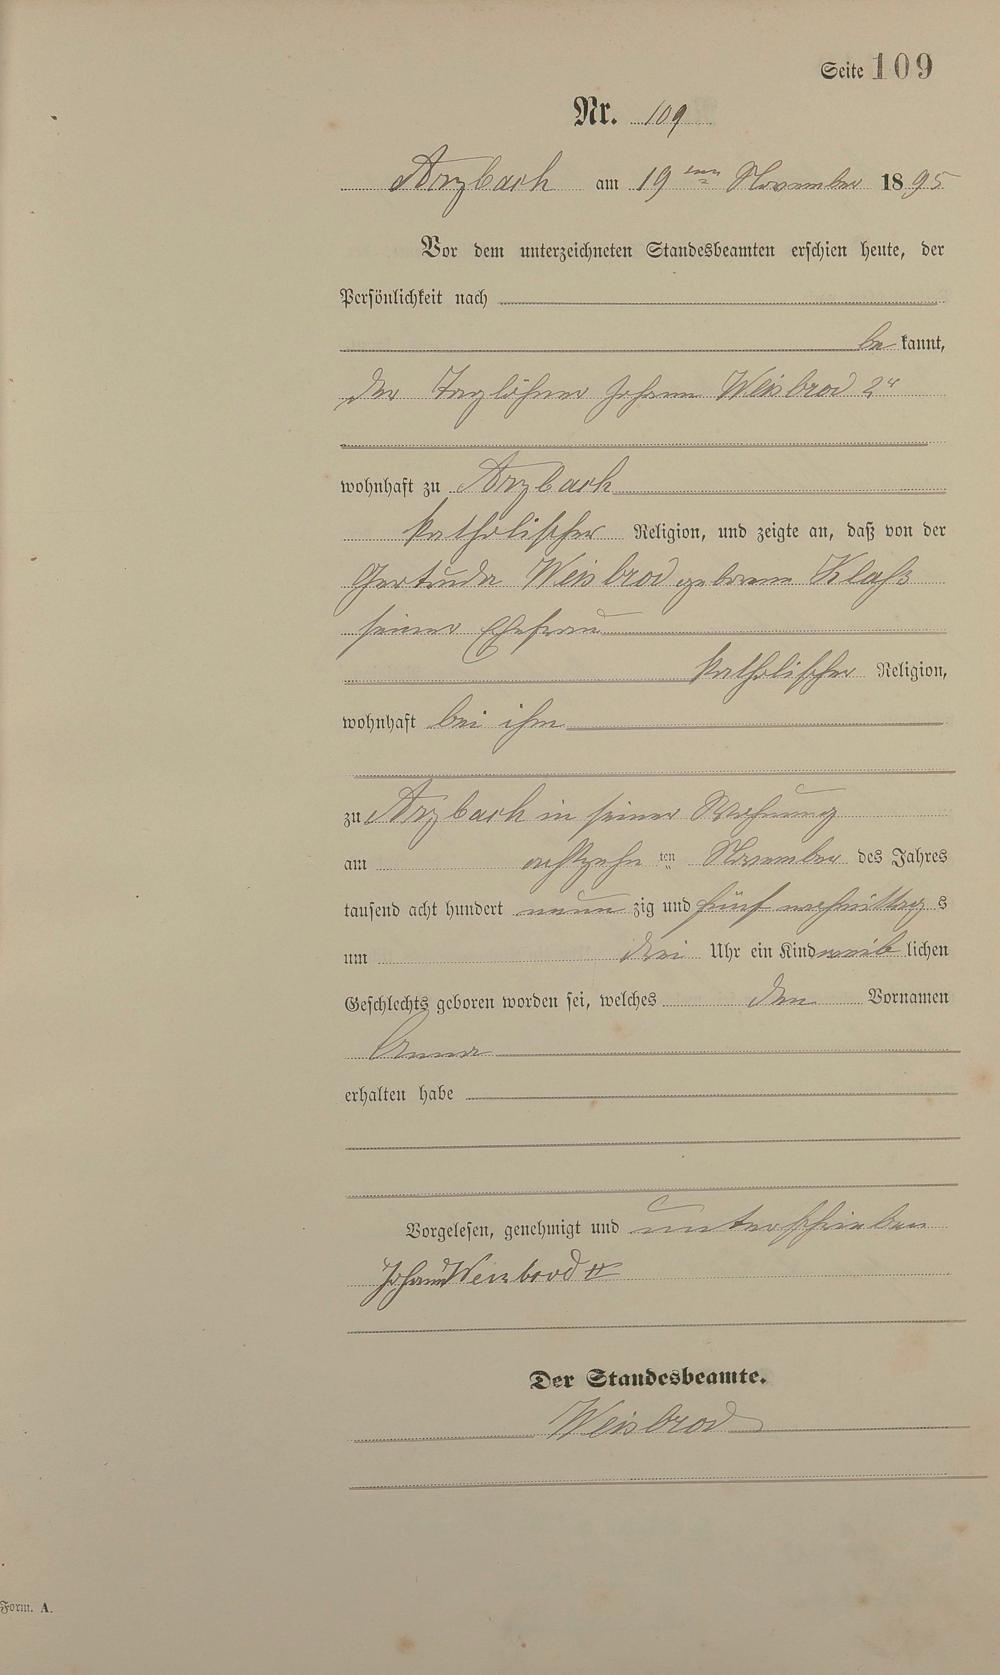 Seite 109
Nr. 109
Arzbach am 19 ten November 1895
Vor dem unterzeichneten Standesbeamten erschien heute, der
Persönlichkeit nach
be kannt,
der Taglöhner Johann Weisbrod 2r
wohnhaft zu Arzbach
katholischer Religion, und zeigte an, daß von der
Gertruda Weisbrod geborene Klaß
seiner Ehefrau
katholischer Religion,
wohnhaft bei ihm
zu Arzbach in seiner Wohnung
am achtzehn ten November des Jahres
tausend acht hundert neun zig und fünf nachmittag s
um drei Uhr ein Kind weib lichen
Geschlechts geboren worden sei, welches den Vornamen
Anna
erhalten habe
Vorgelesen, genehmigt und unterschrieben
Johann Weisbrod II
Der Standesbeamte.
Weisbrod
Form. A.